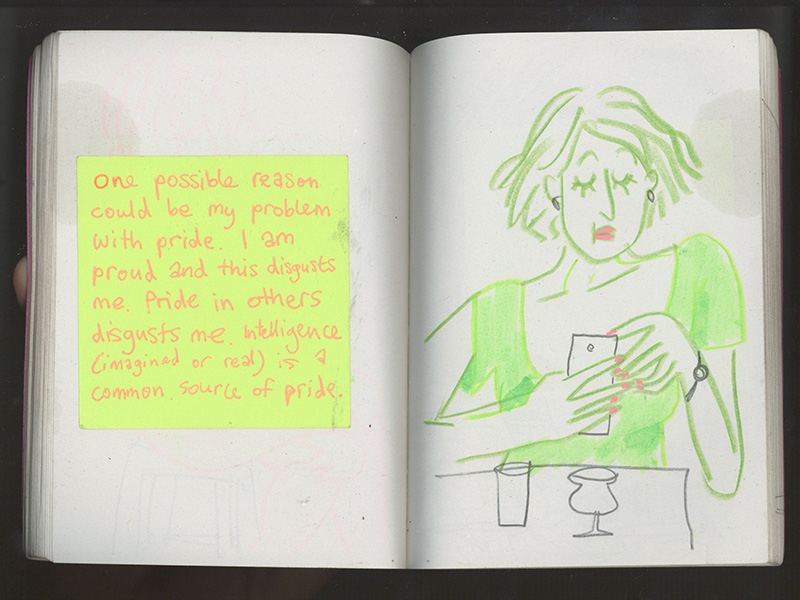 One possible reason
could be my problem
with pride. I am
proud and this disgusts
me. Pride in others
disgusts me. Intelligence
(imagined or real) is a
common source of pride.